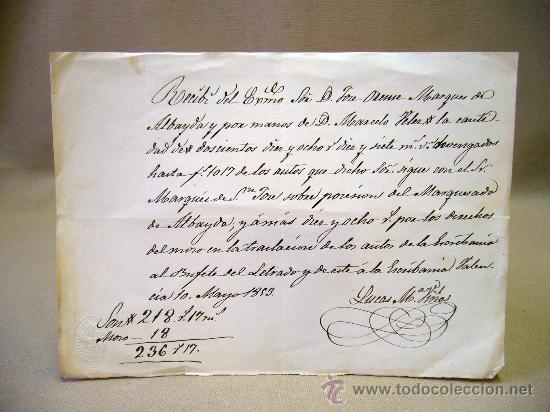 Recibí del Exmo Sor D. Jose Orense Marques de
Albayda y por manos de D. Marcelo Velez la canti
dad de doscientos diez y ocho rs diez y siete ms devengados
hasta f. 1017 de los autos que dicho Sor sigue con el Sr
Marqués de Sn Jose sobre posesion del Marquesado
de Albayda; y á mas diez y ocho rs por los derechos
del moso en la traslacion de los autos de la Escribania
al Bufete del Letrado y de este á la Escribania Valen
cia 10 Mayo 1853.
Lucas
Son 218 r 17 ms
Moso 18
236 r 17.
todocoleccion
© www.todocoleccion.net